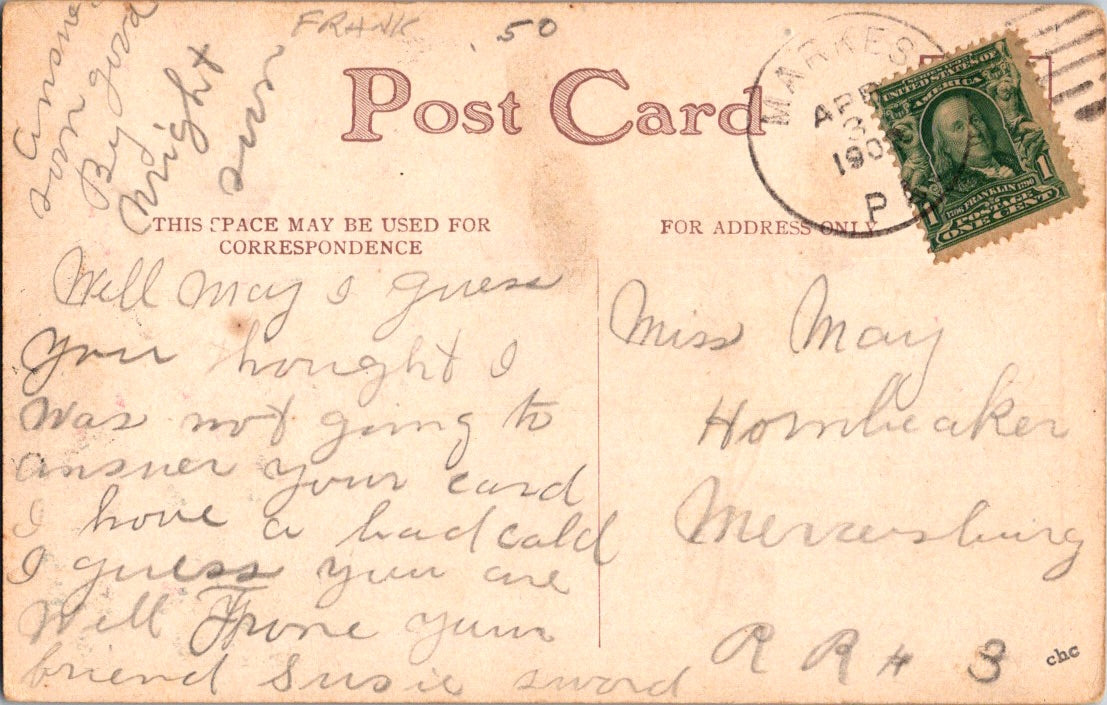 FRANK .50
answer
soon
By good
night
Post Card
MARKES
APR
3
190
PA
UNITED STATES OF
AMERICA
1706 FRANKLIN 1790
POSTAGE
ONE CENT
1 1
THIS SPACE MAY BE USED FOR
CORRESPONDENCE
FOR ADDRESS ONLY
Well May I guess
you hought I
was not going to
answer your card
I have a bad cald
I guess your are
Well From your
friend Susie sword
Miss May
Hornbeaker
Mercersburg
R R # 3
chc